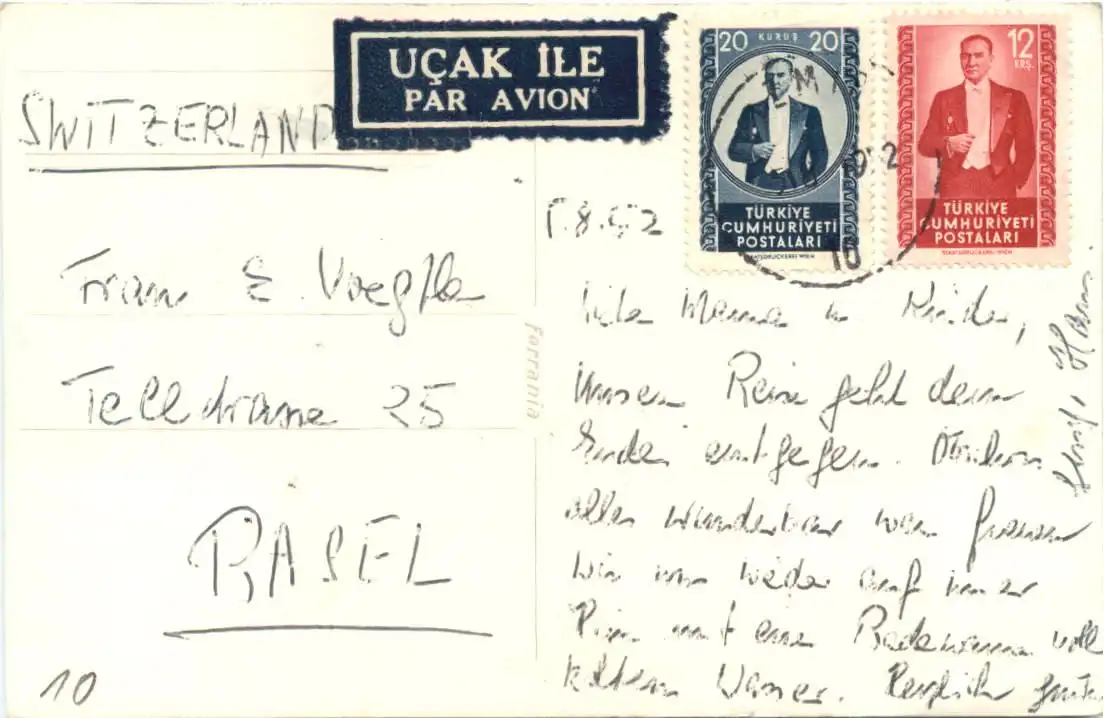 UÇAK İLE
PAR AVION
20 KURUŞ 20
TÜRKİYE
CUMHURİYETİ
POSTALARI
STAATSDRUCKEREI WIEN
12
KRŞ.
TÜRKİYE
CUMHURİYETİ
POSTALARI
STAATSDRUCKEREI WIEN
10
SWITZERLAND
Frau E. Voegtle
Tellstrasse 25
BASEL
10
Ferrania
8.52
Liebe Mama u Kinder,
Unsere Reise geht dem
Ende entgegen. Obschon
alles wunderbar war freuen
wir uns wieder auf
mit eine Badewanne voll
kaltem Wasser. Herzlich